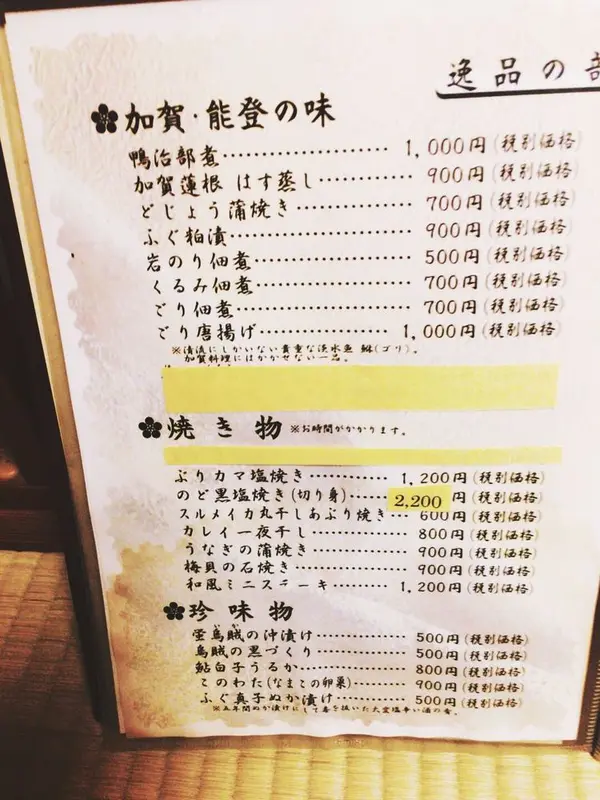 逸品の部
加賀・能登の味
鴨治部煮 1,000円(税別価格)
加賀蓮根 はす蒸し 900円(税別価格)
どじょう蒲焼き 700円(税別価格)
ふぐ粕漬 900円(税別価格)
岩のり佃煮 500円(税別価格)
くるみ佃煮 700円(税別価格)
ごり佃煮 700円(税別価格)
ごり唐揚げ 1,000円(税別価格)
※清流にしかいない貴重な淡水魚 鮴(ゴリ)。
加賀料理にはかかせない一品。
焼き物 ※お時間がかかります。
ぶりカマ塩焼き 1,200円(税別価格)
のど黒塩焼き(切り身) 2,200円(税別価格)
スルメイカ丸干しあぶり焼き 600円(税別価格)
カレイ一夜干し 800円(税別価格)
うなぎの蒲焼き 900円(税別価格)
梅貝の石焼き 900円(税別価格)
和風ミニステーキ 1,200円(税別価格)
珍味物
蛍烏賊の沖漬け 500円(税別価格)
烏賊の黒づくり 500円(税別価格)
鮎白子うるか 800円(税別価格)
このわた(なまこの卵巣) 900円(税別価格)
ふぐ真子ぬか漬け 500円(税別価格)
※五年間ぬか漬けにして毒を抜いた大変塩辛い酒の肴。